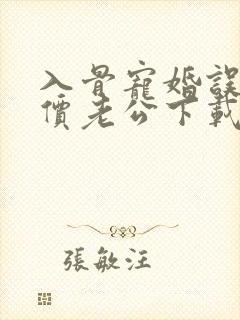 入骨寵婚誤
價老公下載
張敏汪